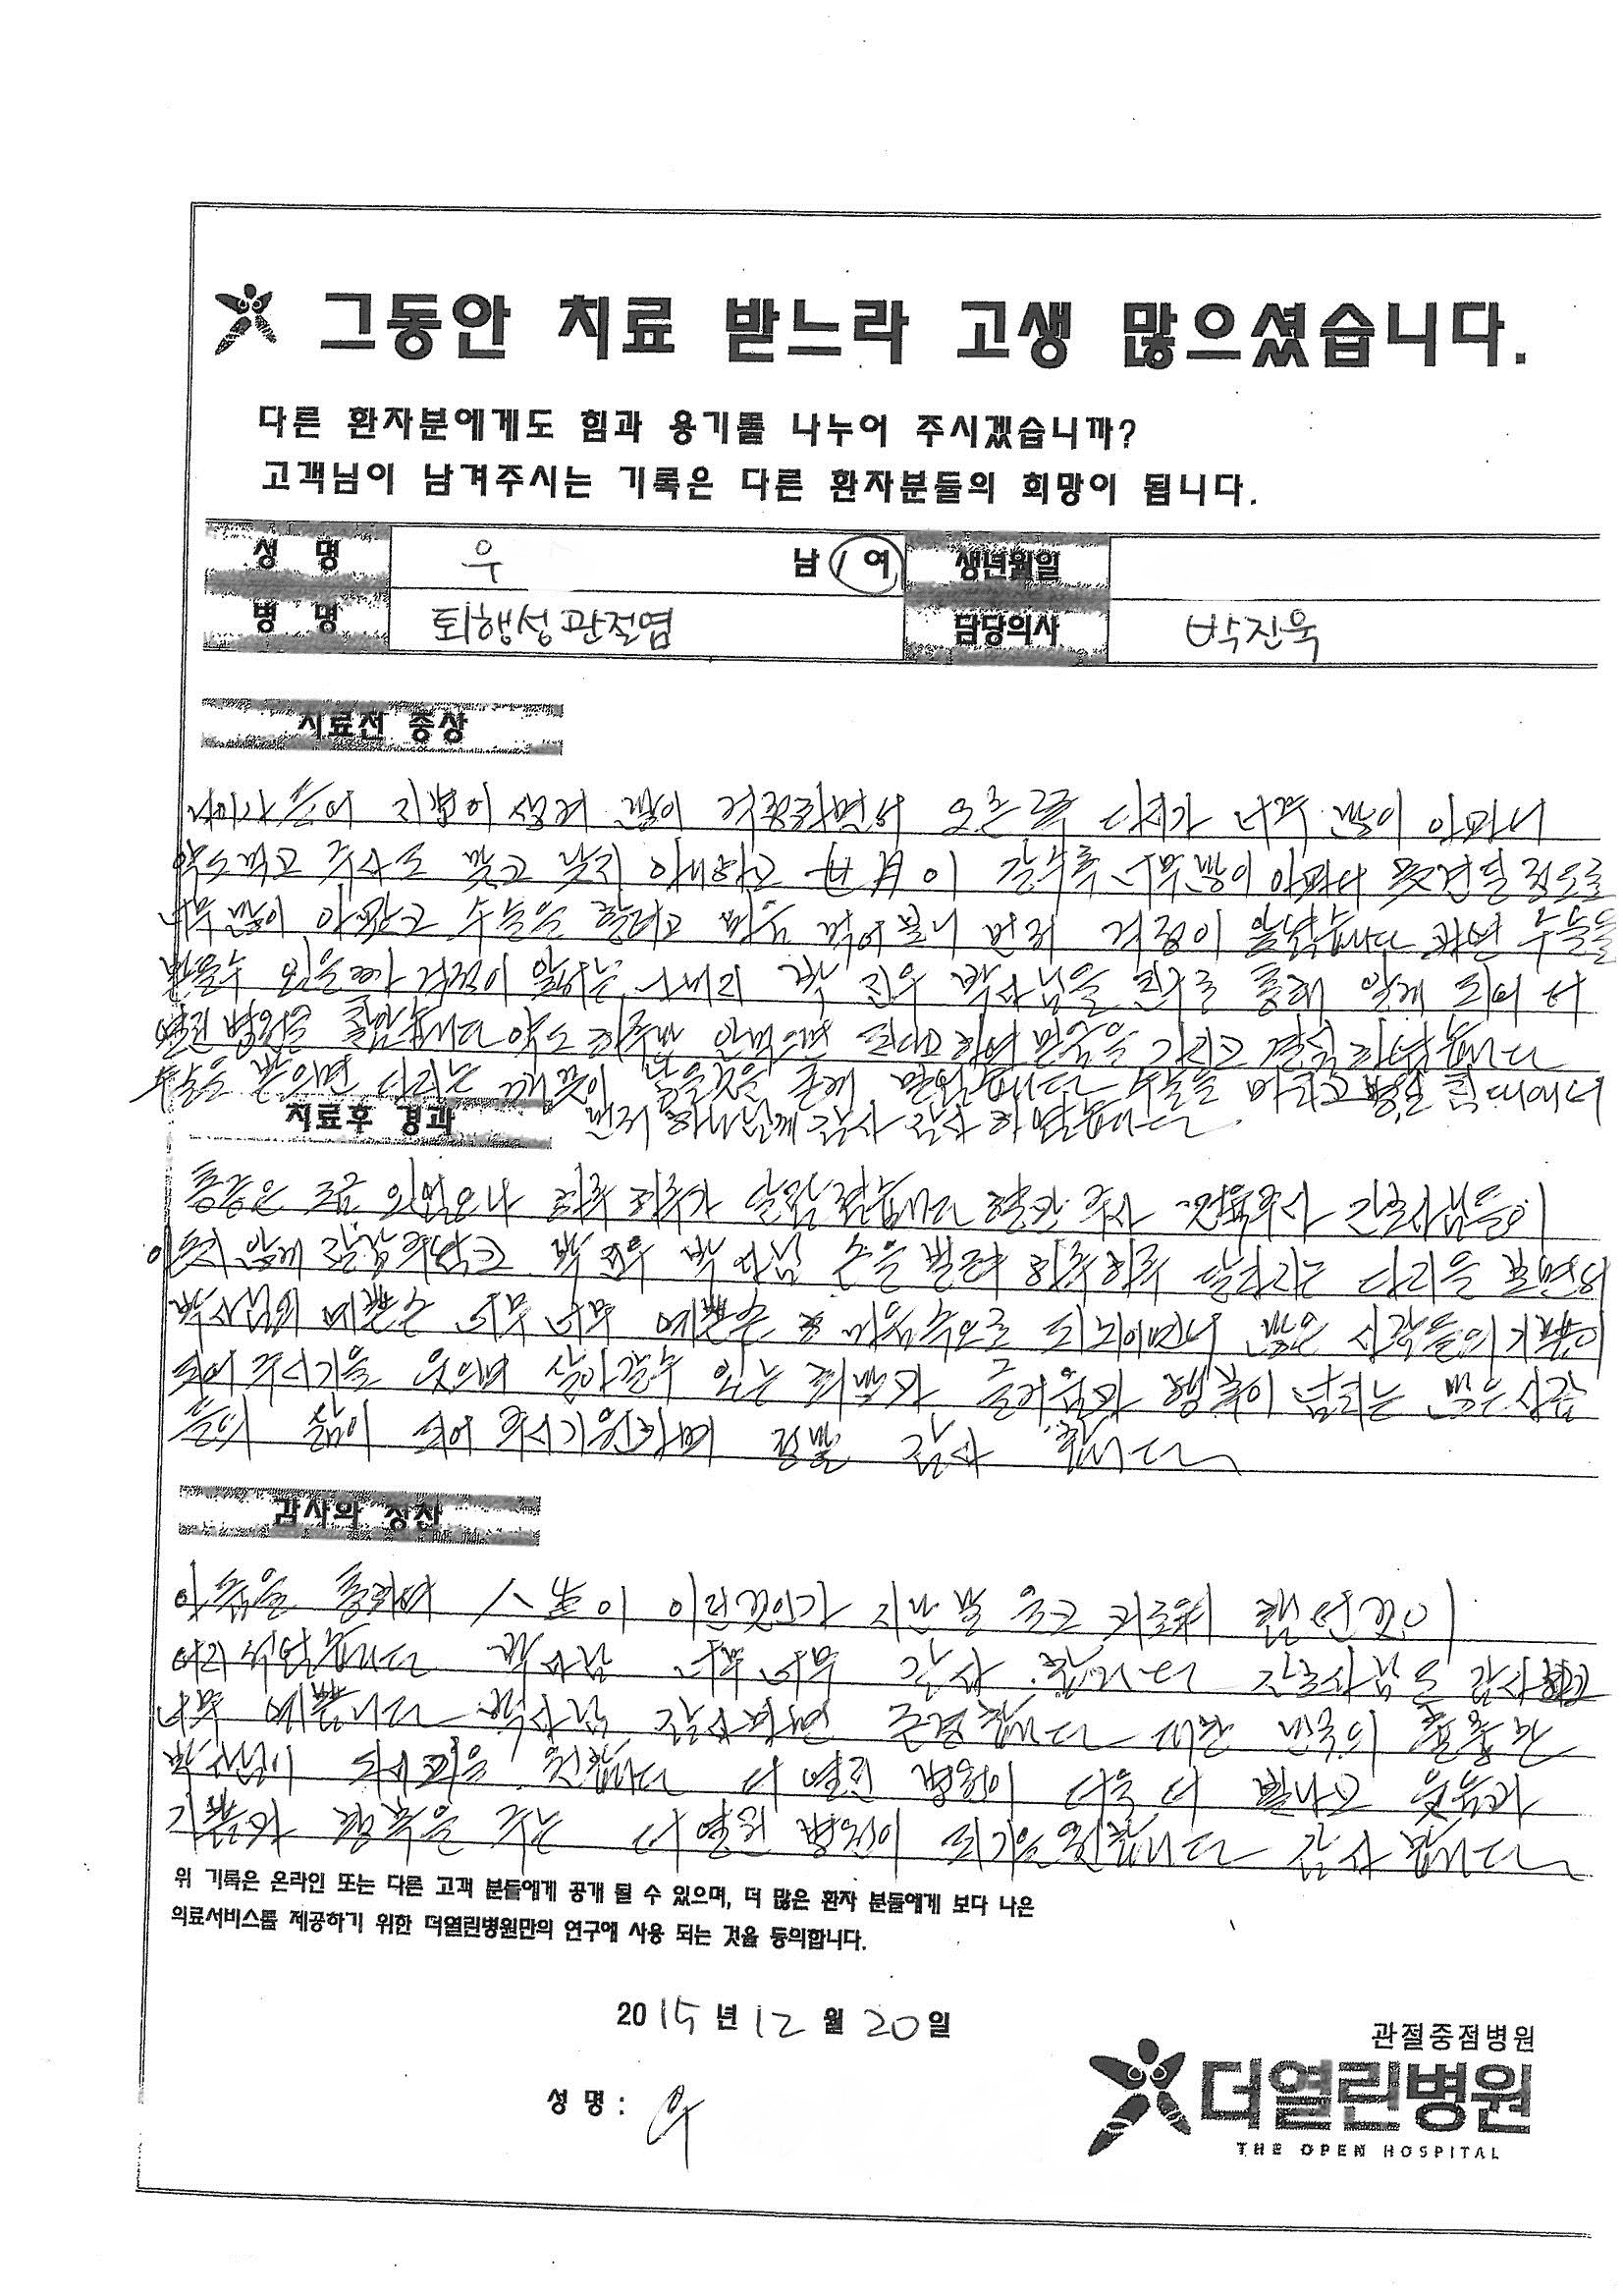 그동안 치료 받느라 고생 많으셨습니다.
다른 환자분에게도 힘과 용기를 나누어 주시겠습니까?
고객님이 남겨주시는 기록은 다른 환자분들의 희망이 됩니다.
성 명 우 남 / 여 생년월일
병 명 퇴행성관절염 담당의사 박진욱
치료전 증상
나이가 들어 지병이 생겨 많이 걱정하면서 오른쪽 다리가 너무 많이 아파서
약도먹고 주사도 맞고 낫지 아니하고 世月이 갈수록 너무 많이 아파서 못견딜정도로
너무 많이 아팠고 수술을 할려고 마음 먹어보니 먼저 걱정이 앞섰습니다 과연 수술을
받을수 있을까 걱정이 앞서는 박 진욱 박사님을 친구를 통해 알게 되어 더
열린 병원을 약도 하루만 안먹으면 된다고 하여 믿음을 가지고 결심 하였습니다
수술을 받으면 다리는 깨끗이 낫을것을 수술을 마치고 병원 침대에서
치료후 경과
먼저 하나님께 감사 감사 하였습니다.
통증은 조금 있었으나 하루 하루가 달라졌습니다 혈관 주사 간호사님들이
아프지 않게 박 진욱 박사님 손을 빌려 하루하루 달라지는 다리을 보면서
박사님의 예쁜손 너무 너무 예쁜손 마음속으로 되뇌이면서 많은 사람들의 기쁨이
되어 주시기을 웃으며 살아갈수 있는 희망과 즐거움과 행복이 넘치는 많은 사람
들의 삶이 되어 주시기원하며 정말 감사 합니다
감사와 칭찬
아픔을 통하여 人生이 이런것인가 지난날 울고 괴로워 했던것이
박사님 너무 너무 감사 합니다 간호사님도 감사하고
너무 예쁩니다 박사님 감사하며 존경합니다 대한 민국의 훌륭한
박사님이 되시기을 원합니다 더 열린 병원이 더욱 더 빛나고 웃음과
기쁨과 행복을 주는 더 열린 병원이 되기을 원합니다 감사 합니다
위 기록은 온라인 또는 다른 고객 분들에게 공개 될 수 있으며, 더 많은 환자 분들에게 보다 나은
의료서비스를 제공하기 위한 더열린병원만의 연구에 사용 되는 것을 동의합니다.
2015년 12월 20일
관절중점병원
성 명 : 우
더열린병원
THE OPEN HOSPITAL